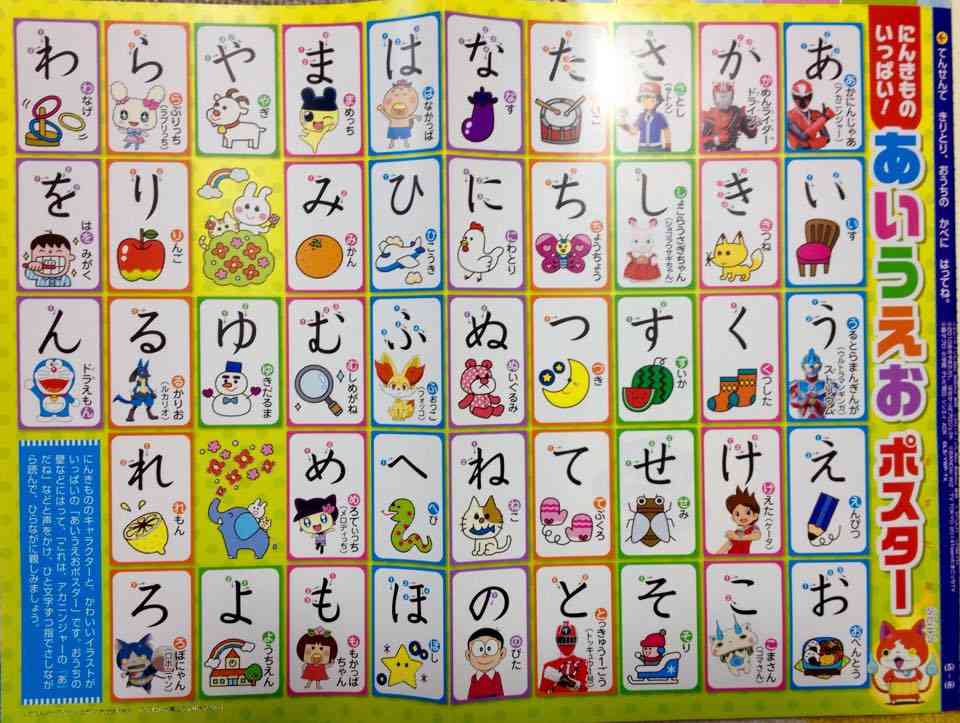 てんせんで きりとり、おうちの かべに はってね。
にんきもの
いっぱい!
あいうえお ポスター
あ
あかにんじゃあ
(アカニンジャー)
い
いす
う
うるとらまんぎんが
え
えんぴつ
お
おべんとう
か
かめんライダー
き
きつね
く
くつした
け
けえた(ケータ)
こ
こまさん
(コマさん)
さ
さとし
(サトシ)
し
しょこらうさぎちゃん
(ショコラウサギちゃん)
す
すいか
せ
せみ
そ
そり
た
たいこ
ち
ちょうちょう
つ
つき
て
てぶくろ
と
とっきゅう1ごう
(トッキュウ1号)
な
なす
に
にわとり
ぬ
ぬいぐるみ
ね
ねこ
の
のびた
は
はなかっぱ
ひ
ひこうき
ふ
ふぉっこ
(フォッコ)
へ
へび
ほ
ほし
ま
まめっち
み
みかん
む
むしめがね
め
めろでぃっち
(メロディっち)
も
ももかっぱ
ちゃん
や
やぎ
ゆ
ゆきだるま
よ
ようちえん
ら
らぶりっち
(ラブリっち)
り
りんご
る
るかりお
(ルカリオ)
れ
れもん
ろ
ろぼにゃん
(ロボニャン)
わ
わなげ
を
はをみがく
ん
ドラえもん
にんきもののキャラクターと、かわいいイラストが
いっぱいの「あいうえおポスター」です。おうちの
壁などにはって、「これは、アカニンジャーの『あ』
だね」などと声をかけ、ひと文字ずつ指でさしなが
ら読んで、ひらがなに親しみましょう。